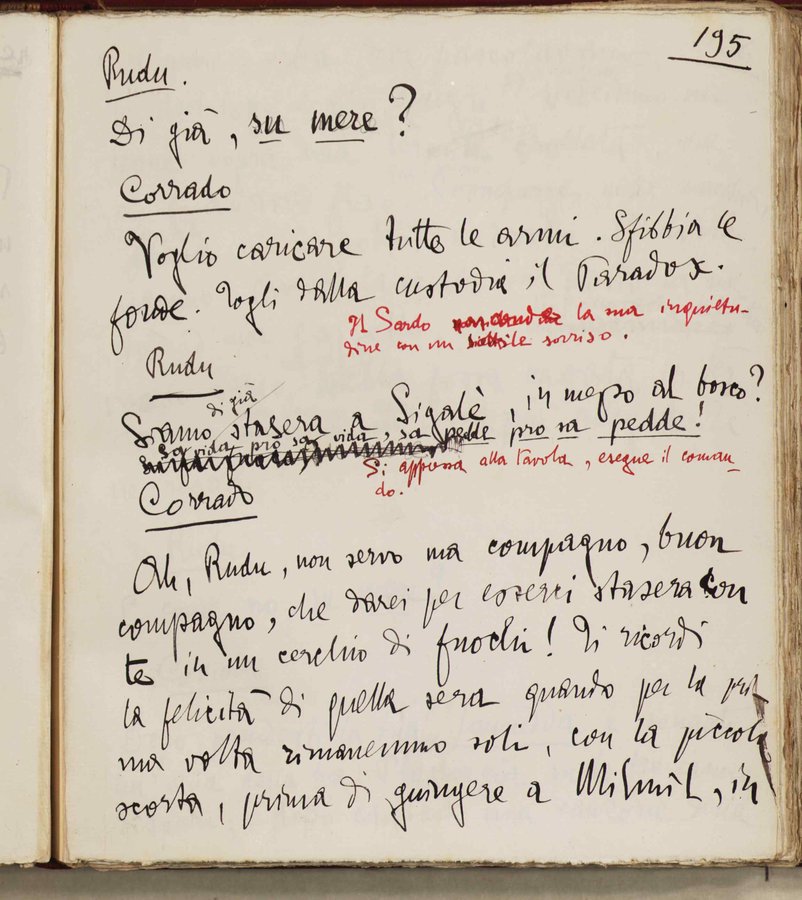 195
Rudu.
Di già, su mere?
Corrado
Voglio caricare tutte le armi. Sfibbia le
fonde. Togli dalla custodia il Paradox.
Il Sardo la sua inquietu-
dine con un sottile sorriso.
Rudu
di già
Siamo stasera a Sigalè, in mezzo al bosco?
Sa vida pro sa vida, sa pedde pro sa pedde!
Si appressa alla tavola, esegue il coman-
do.
Corrado
Ah, Rudu, non servo ma compagno, buon
compagno, che darei per esserci stasera con
te in un cerchio di fuochi! Ti ricordi
la felicità di quella sera quando per la pri-
ma volta rimanemmo soli, con la piccola
scorta, prima di giungere a Milmil, in